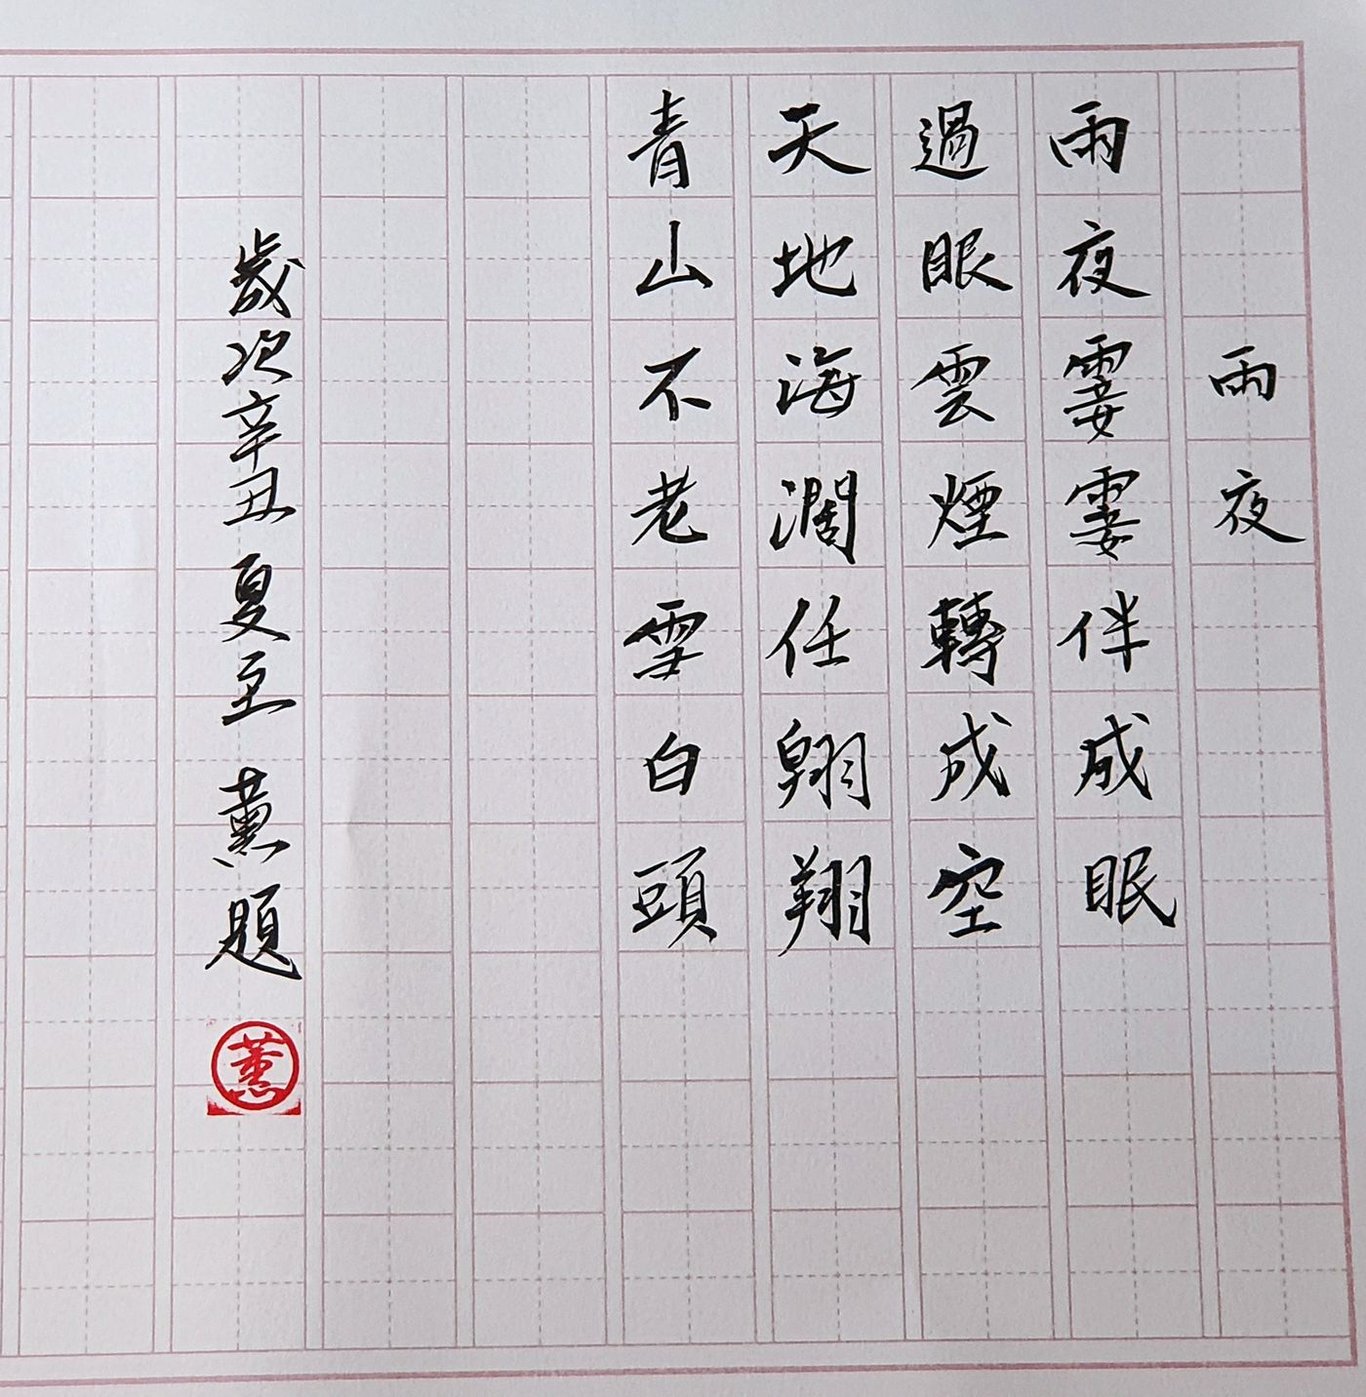 雨夜
雨夜霎霎伴成眠
過眼雲煙轉成空
天地海濶任翱翔
青山不老雪白頭
歲次辛丑夏至 薰題
薰